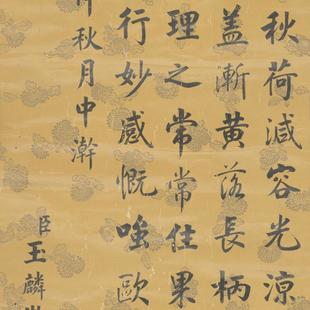 秋荷減容光涼
盖漸黄落長柄
理之常常住果
行妙感慨嗤歐
秋月中澣
臣玉麟